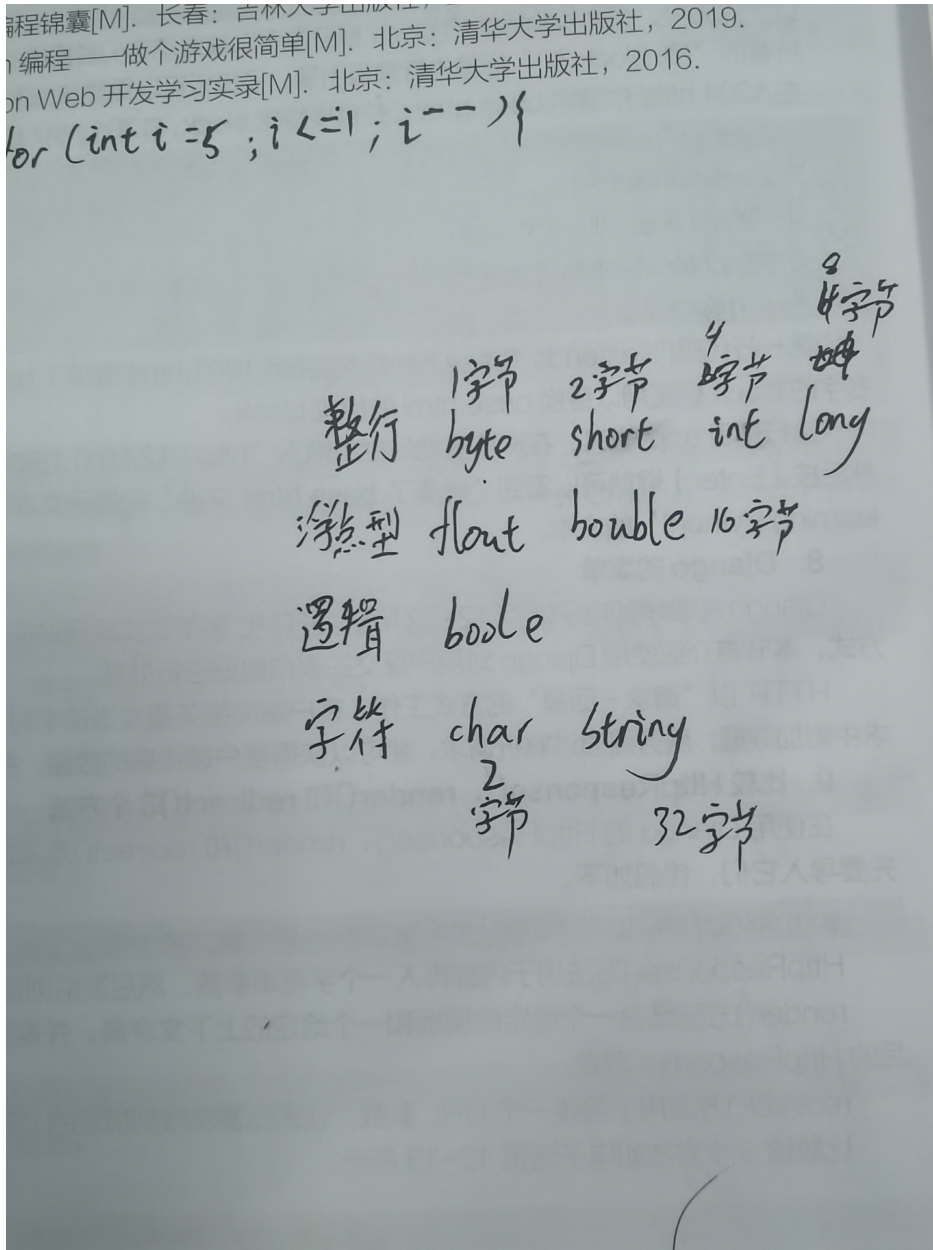 编程锦囊[M]. 长春：吉林大学出版社，
编程——做个游戏很简单[M]. 北京：清华大学出版社，2019.
on Web 开发学习实录[M]. 北京：清华大学出版社，2016.
for (int i =5 ; i <=1 ; i-- ){
8
字节
1字节 2字节 4字节
整行 byte short int long
浮点型 flout bouble 16字节
逻辑 boole
字符 char String
2
字节 32字节